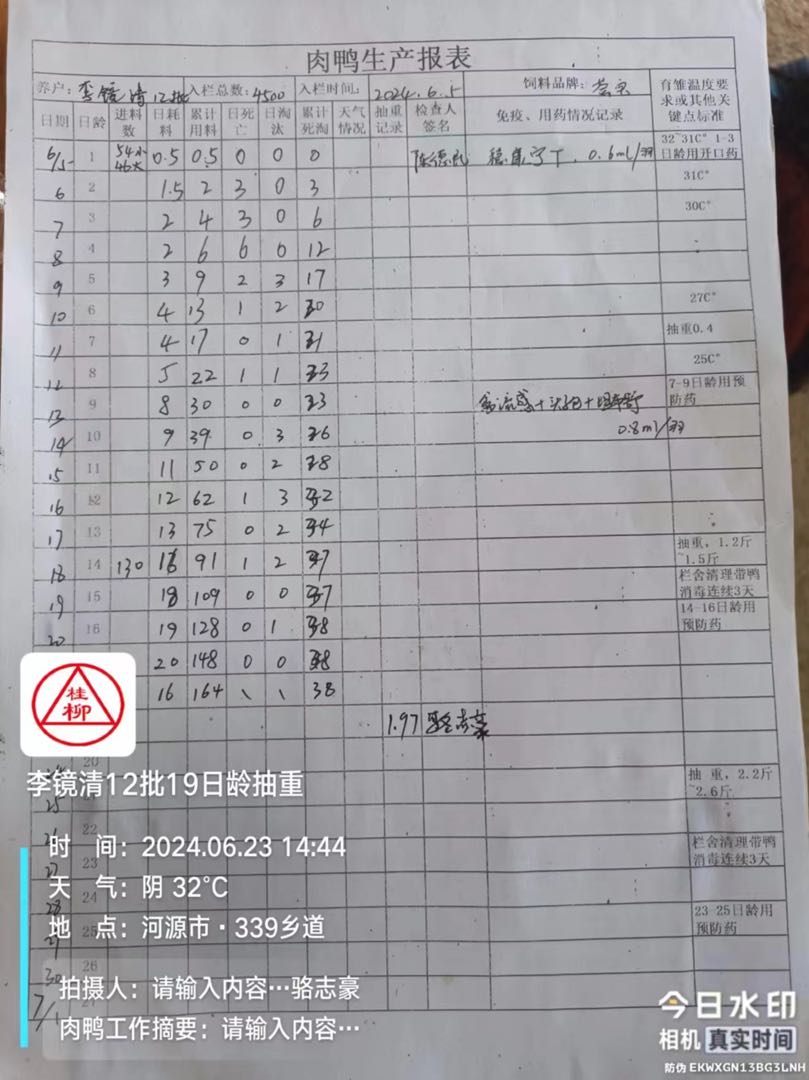 肉鸭生产报表
养户: 李镜清12批 入栏总数: 4500 入栏时间: 2024.6.5 饲料品牌: 育雏温度要求或其他关键点标准
日期 日龄 进料数 日耗料 累计用料 日死亡 日淘汰 累计死淘 天气情况 抽重记录 检查人签名 免疫、用药情况记录
6/5 1 54小 46大 0.5 0.5 0 0 0 陈德 0.6ml/羽 32~31C° 1-3日龄用开口药
6 2 1.5 2 3 0 3 31C°
7 3 2 4 3 0 6 30C°
8 4 2 6 6 0 12
9 5 3 9 2 3 17
10 6 4 13 1 2 20 27C°
11 7 4 17 0 1 21 抽重0.4
12 8 5 22 1 1 23 25C°
13 9 8 30 0 0 23 禽流感+ 7-9日龄用预防药
14 10 9 39 0 3 26 0.8ml/羽
15 11 11 50 0 2 28
16 12 12 62 1 3 32
17 13 13 75 0 2 34
18 14 130 16 91 1 2 37 抽重，1.2斤~1.5斤
19 15 18 109 0 0 37 栏舍清理带鸭消毒连续3天
20 16 19 128 0 1 38 14-16日龄用预防药
20 148 0 0 38
16 164 \ \ 38
1.97 骆志豪
20
25 抽 重，2.2斤~2.6斤
26 22
27 23 栏舍清理带鸭消毒连续3天
28 24
25 23-25日龄用预防药
30 26
7/1
桂柳
李镜清12批19日龄抽重
时 间: 2024.06.23 14:44
天 气: 阴 32°C
地 点: 河源市·339乡道
拍摄人: 请输入内容…骆志豪
肉鸭工作摘要: 请输入内容…
今日水印
相机 真实时间
防伪 EKWXGN13BG3LNH